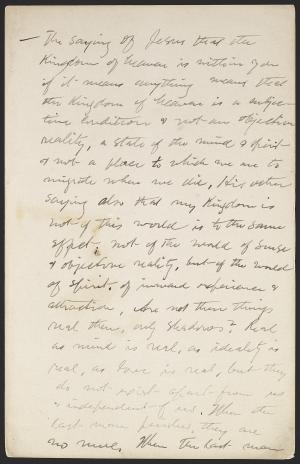 — The saying of Jesus that the
Kingdom of Heaven is within you
if it means anything means that
the Kingdom of Heaven is a subjec-
tive condition & not an objective
reality, a state of the mind & spirit
& not a place to which we are to
migrate when we die, His other
saying also that my Kingdom is
not of this world is to the same
effect, not of the world of sense
& objective reality, but of the world
of spirit, of inward experience &
attraction, Are not these things
real then, only shadows? Real
as mind is real, as ideality is
real, as love is real, but they
do not exist apart from us
& independent of us. When the
last man perishes, they are
no more, When the last man